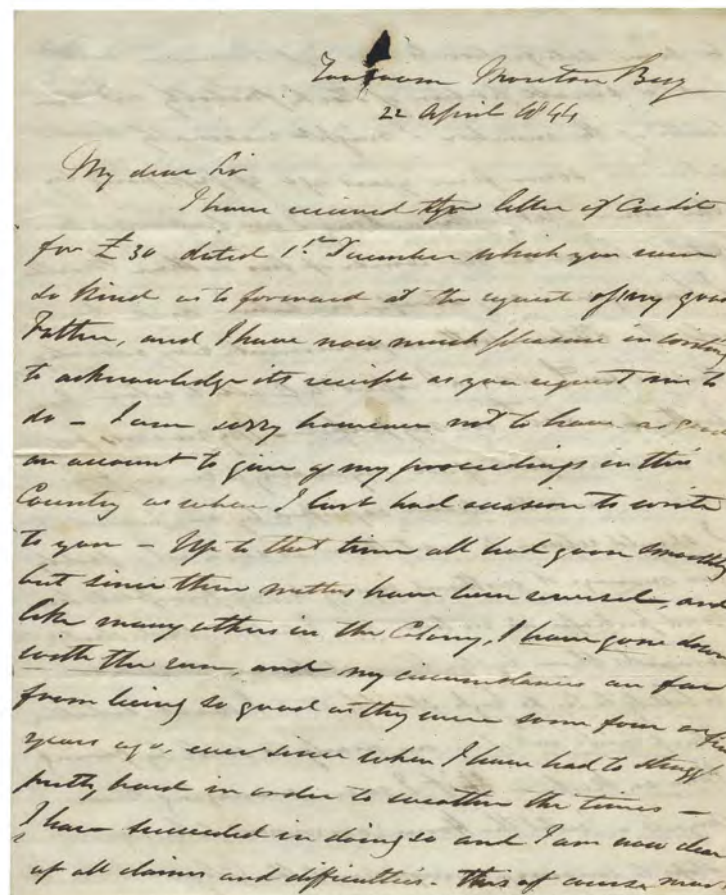 Moreton Bay
22 April 1844
My dear Sir
I have received the letter of Credit
for £30 dated 1st December which you were
so kind as to forward at the request of my good
Father, and I have now much pleasure in
to acknowledge its receipt as you request me to
do – I am sorry however not to have as good
an account to give of my proceedings in this
Country as when I last had occasion to write
to you – Up to that time all had gone smoothly
but since then matters have been reversed, and
like many others in the Colony, I have gone down
with the run, and my circumstances are far
from being so good as they were some four or five
years ago, ever since when I have had to struggl
pretty hard in order to weather the times –
I have succeeded in doing so and I am now clear
of all claims and difficulties. This of course